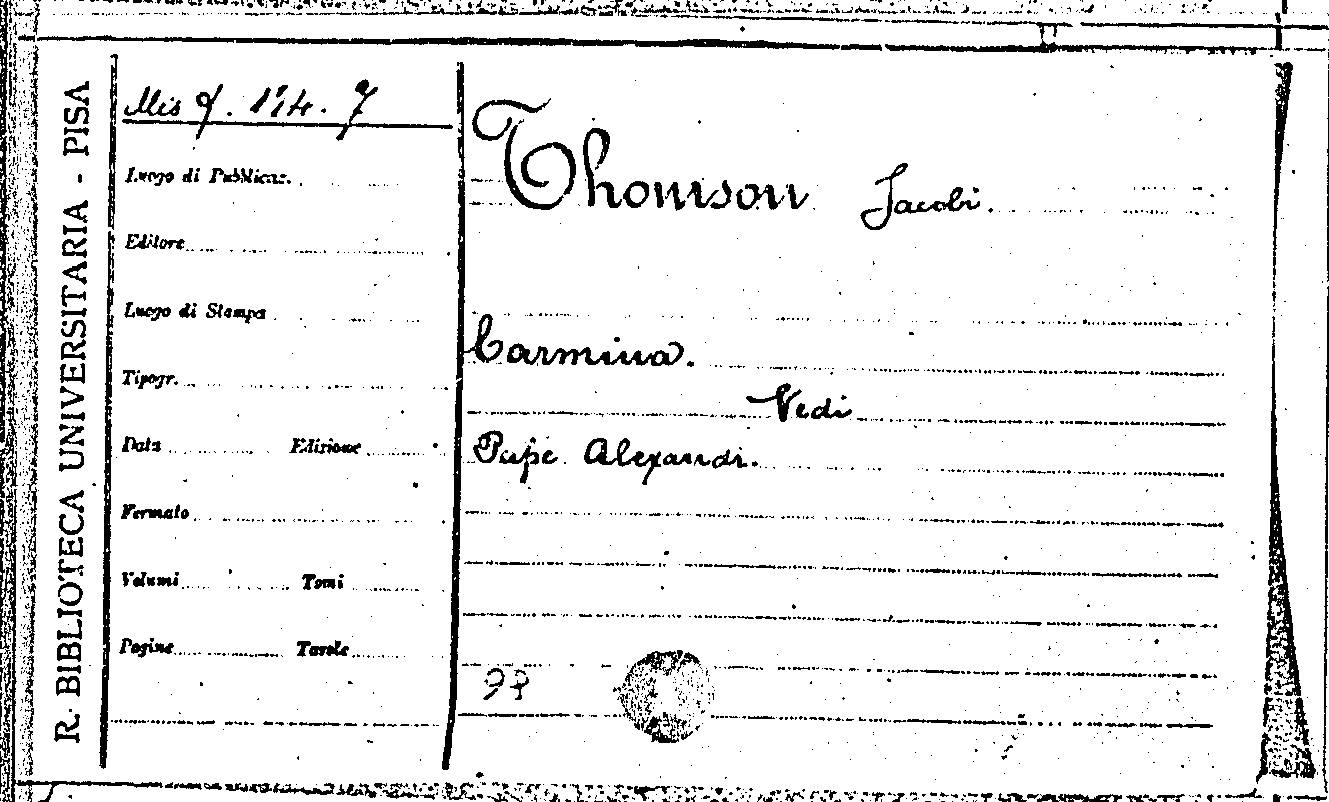 R. BIBLIOTECA UNIVERSITARIA - PISA
Mis q. 174. 7
Luogo di Pubblicaz.
Editore
Luogo di Stampa
Tipogr.
Data Edizione
Formato
Volumi Tomi
Pagine Tavole
Thomson Jacobi.
Carmina.
Vedi
Pope Alexandi.